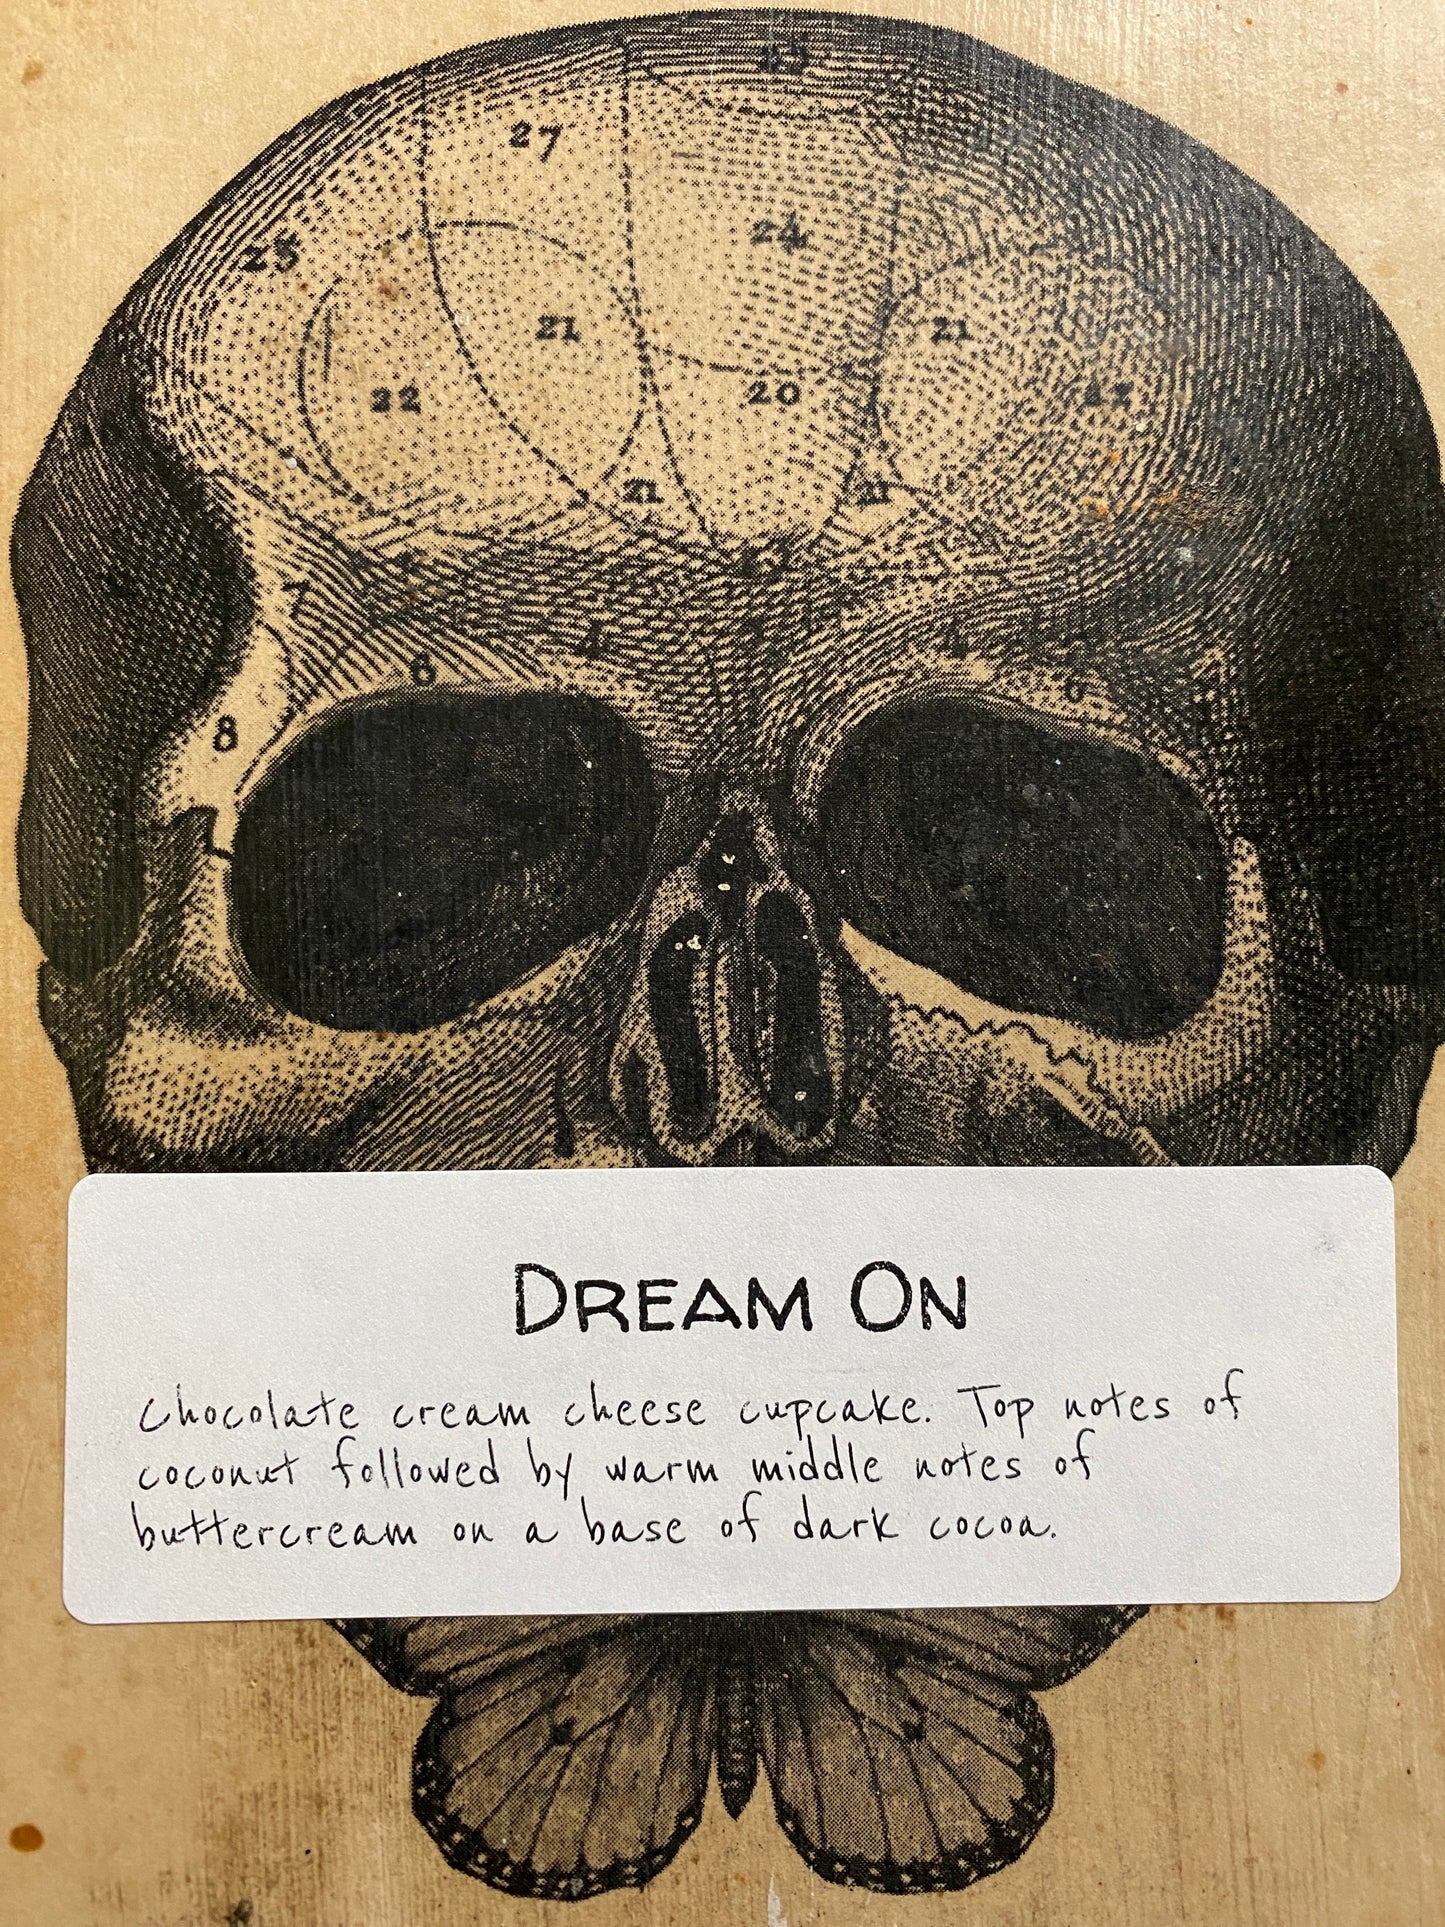 27
24
25
21
21
22
20
21
21
7
6
8
DREAM ON
Chocolate cream cheese cupcake. Top notes of
coconut followed by warm middle notes of
buttercream on a base of dark cocoa.